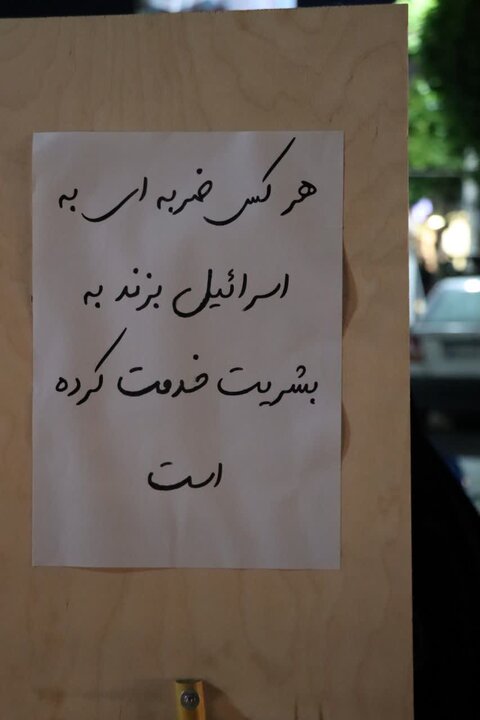 هر کس ضربه ای به
اسرائیل بزند به
بشریت خدمت کرده
است